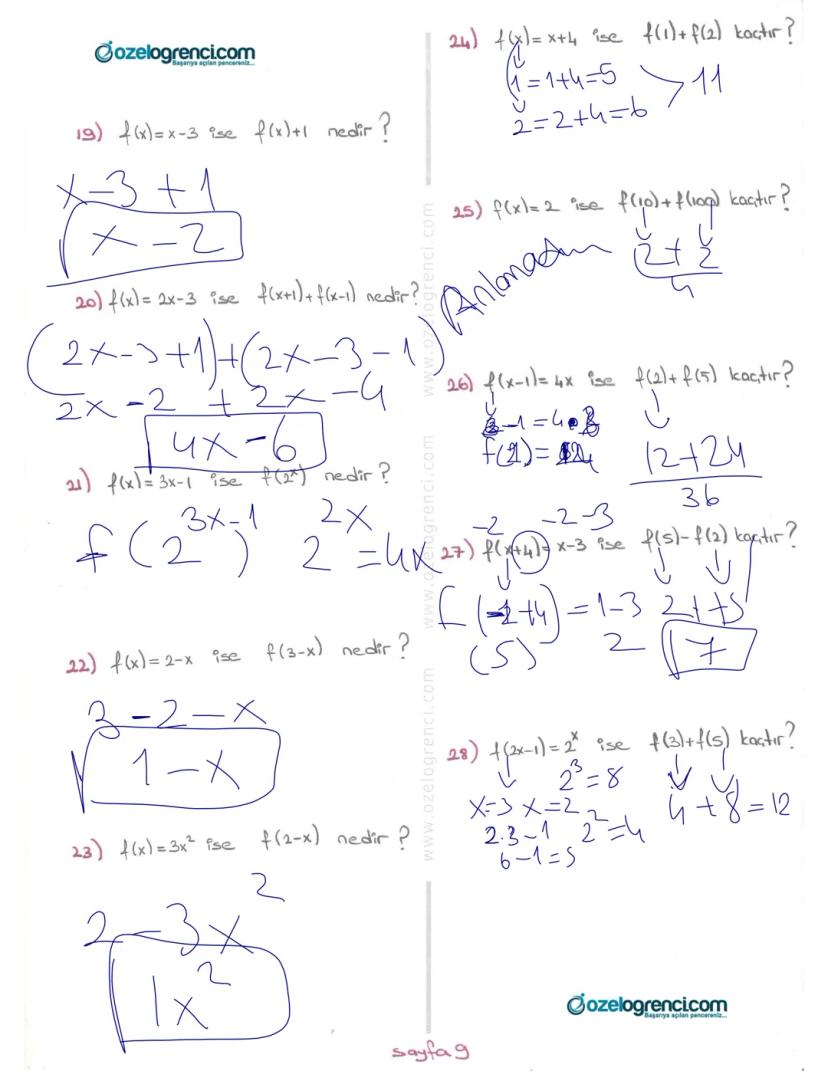 ozelogrenci.com
Başarıya açılan pencereniz...
19) f(x)=x-3 ise f(x)+1 nedir?
x-3+1
x-2
20) f(x)=2x-3 ise f(x+1)+f(x-1) nedir?
(2x-3+1)+(2x-3-1)
2x-2+2x-4
4x-6
21) f(x)=3x-1 ise f(2ˣ) nedir?
f(2^(3x-1)) 2^(2x)=4x
22) f(x)=2-x ise f(3-x) nedir?
3-2-x
1-x
23) f(x)=3x² ise f(2-x) nedir?
2-3x²
1x²
24) f(x)=x+4 ise f(1)+f(2) kaçtır?
1=1+4=5
2=2+4=6 > 11
25) f(x)=2 ise f(10)+f(100) kaçtır?
Anlamadım
2+2
4
26) f(x-1)=4x ise f(2)+f(5) kaçtır?
-1=4.
12+24
36
-2 -2-3
27) f(x+4)=x-3 ise f(5)-f(2) kaçtır?
=1-3 2++5
(5) 2 7
28) f(2x-1)=2ˣ ise f(3)+f(5) kaçtır?
2³=8
x=3 x=2 4+8=12
2.3-1 2²=4
6-1=5
www.ozelogrenci.com
www.ozelogrenci.com
www.ozelogrenci.com
ozelogrenci.com
Başarıya açılan pencereniz...
sayfa 9